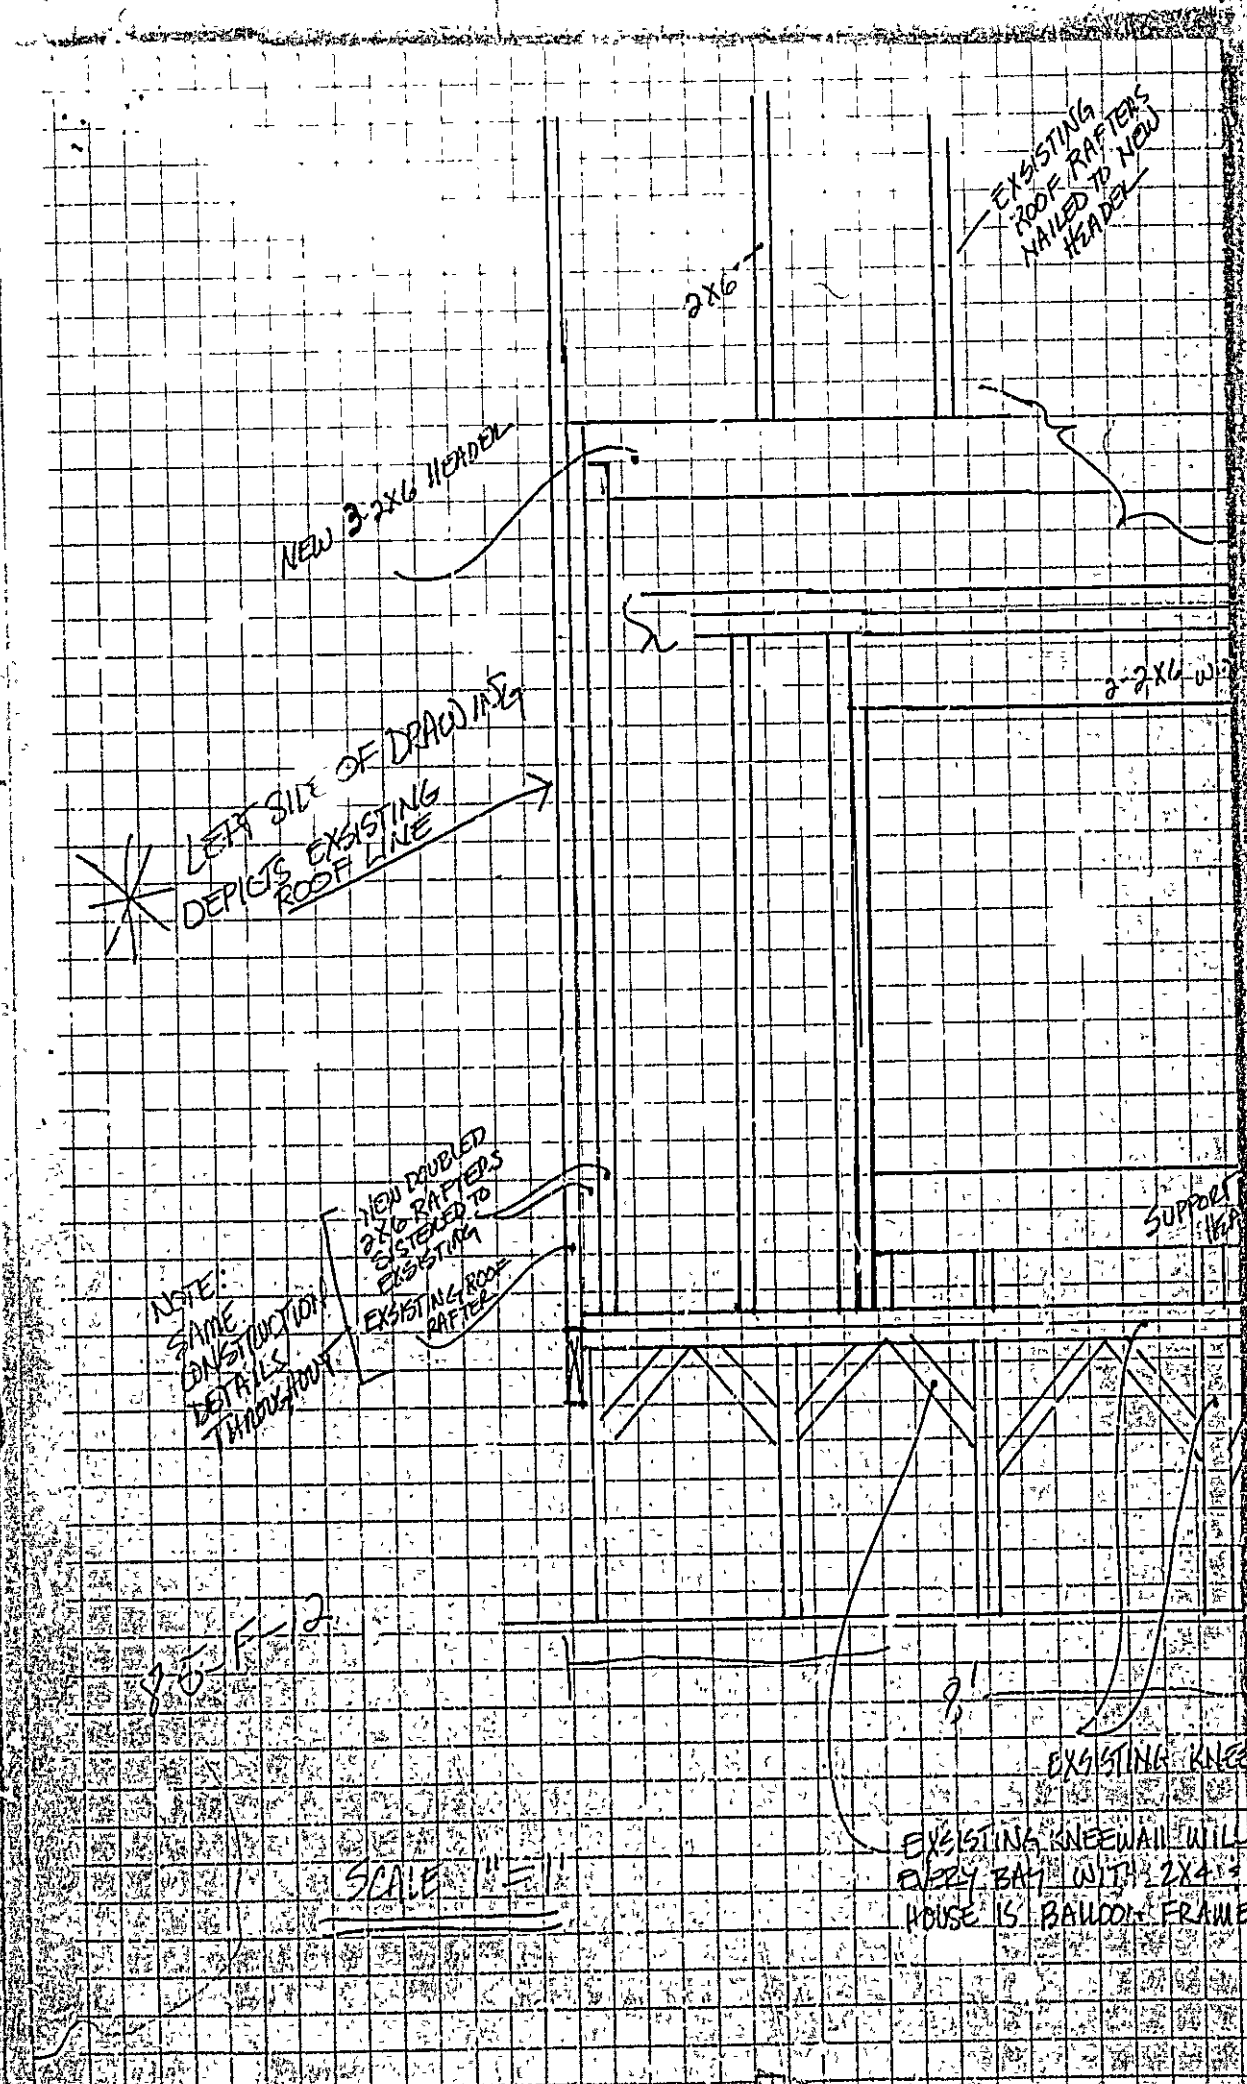 EXSISTING
ROOF RAFTERS
NAILED TO NEW
HEADER
2X6
NEW 3-2X6 HEADER
2-2X6 W
LEFT SIDE OF DRAWING
DEPICTS EXSISTING
ROOF LINE
NEW DOUBLED
2X6 RAFTERS
SISTERED TO
EXSISTING
EXSISTING ROOF
RAFTER
NOTE:
SAME
CONSTRUCTION
DETAILS
THROUGHOUT
SUPPORT
HEA
8'
EXSISTING KNEE
EXSISTING KNEEWALL WILL
EVERY BAY WITH 2X4'S
HOUSE IS BALLOON FRAME
SCALE 1"=1'